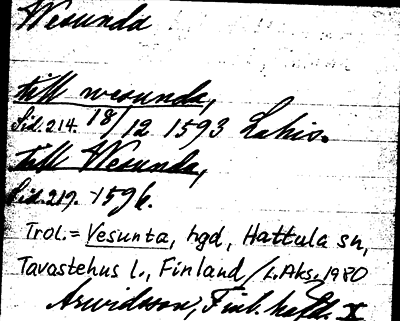 Wesunda
till wesunda,
Sid. 214. 18/12 1593 Lahis.
till Wesunda,
Sid. 219. 1596.
Trol. = Vesunta, hgd, Hattula sn,
Tavastehus l., Finland /L.Aks., 1980
Arwidsson, Finl. häfd. X